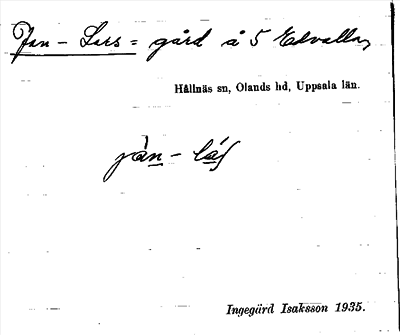 Jan-Lars = gård å 5 Edvalla,
Hållnäs sn, Olands hd, Uppsala län.
jàn-láʃ
Ingegärd Isaksson 1935.